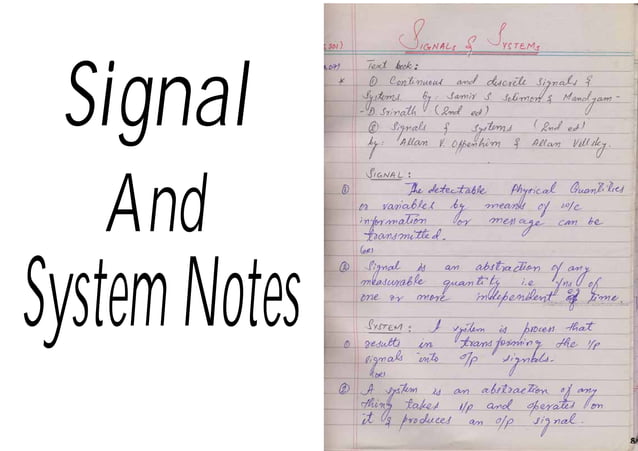 Signal
And
System Notes
SIGNALS & SYSTEMS
Text book:
* ① Continuous and discrete signals &
Systems by: Samir S Solimon & Mandyam-
-D Srinath (2nd ed)
② Signals & Systems (2nd ed)
by: Allan V. Oppenhim & Allan Villsky.
SIGNAL:
① The detectable Physical Quantities
or variables by means of w/c
information or message can be
transmitted.
(or)
② Signal is an abstraction of any
measurable quantity i.e. fns of
one or more independent time.
SYSTEM: A system is process that
① results in transforming the i/p
signals into o/p signals.
(or)
② A system is an abstraction of any
thing takes i/p and operates on
it & produces an o/p signal.